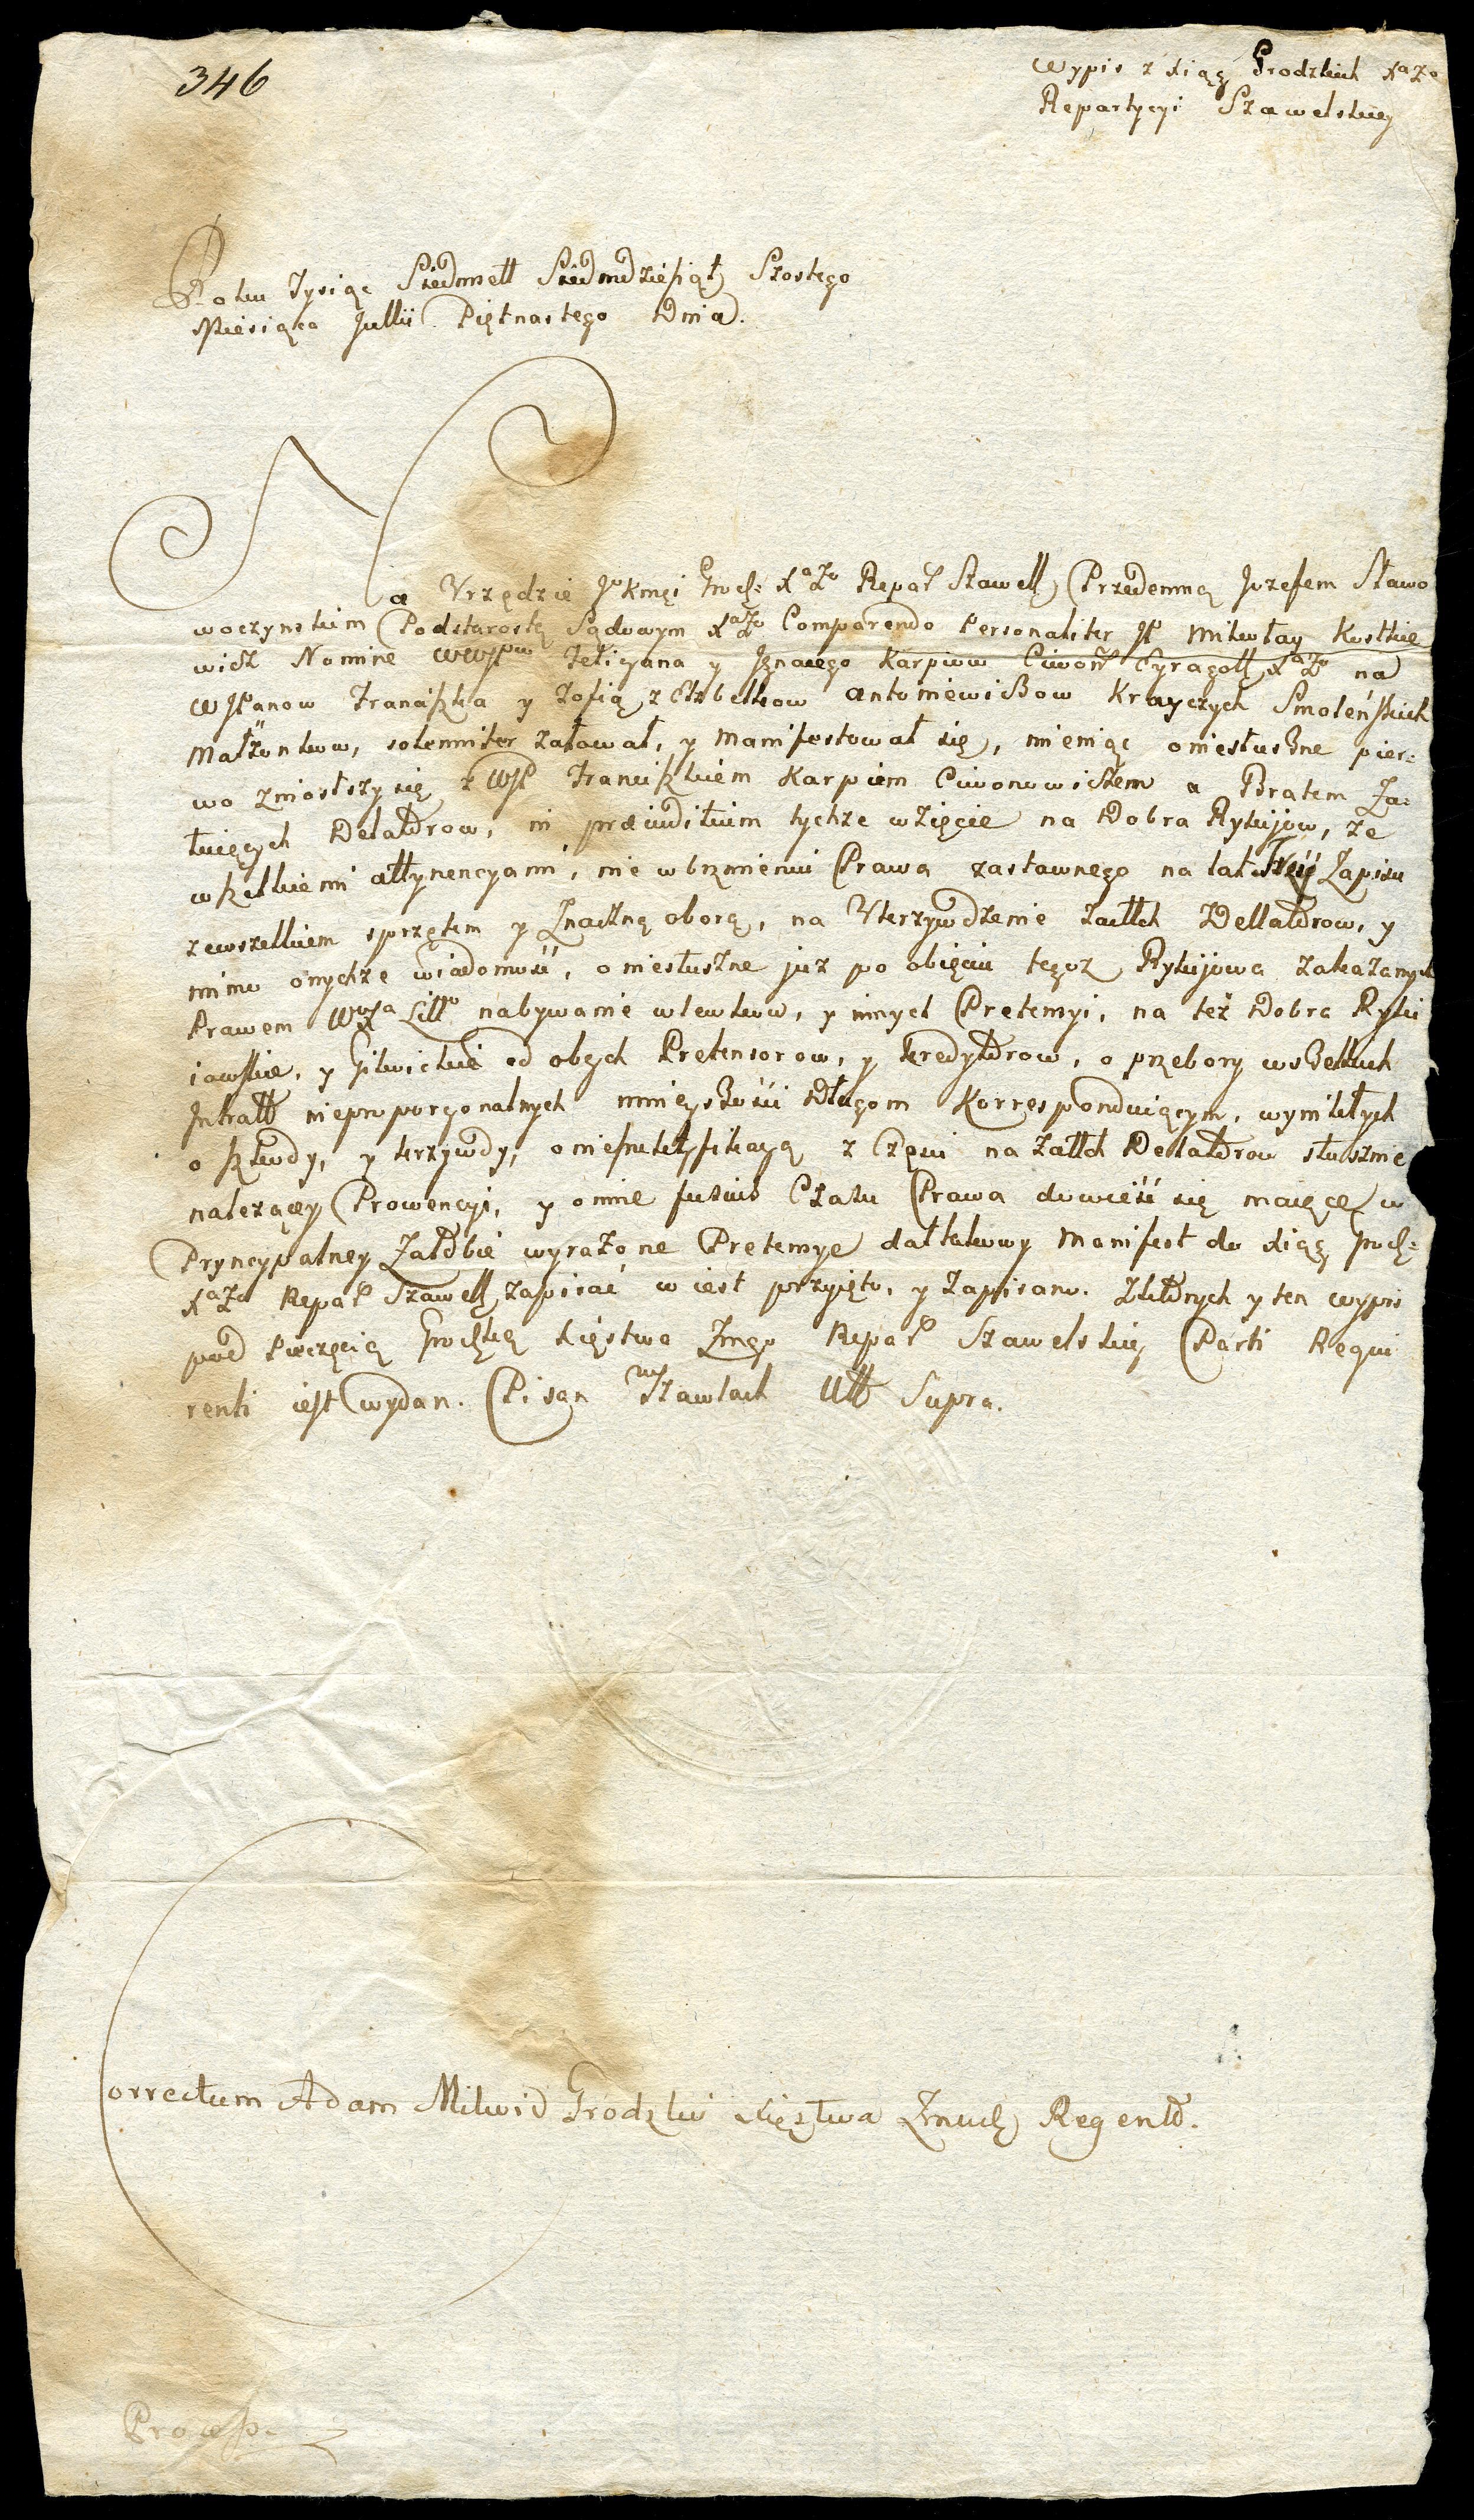 346
Wypis z Xiąg Grodzkich Xa Zo
Repartycyi Szawelskiey
Roku Tysiąc Siedmsett Siedmdziesiąt Szostego
Miesiąca Julii Piętnastego Dnia.
Na Vrzędzie Jo Kmci Grodz: Xa Zo Repart Szawell Przedemną Jozefem Sławo
woczynskim Podstarostą Sądowym Xa Zo Comparendo Personaliter JP Mikołay Kostkie
wicz Nomine WWJPw Felicyana y Ignacego Karpiow Ciwoń Eyragoll Xa Zo na
WJPanow Franciszka y Zofią z Elzbetkow Antoniewiszow Krayczych Smoleńskich
Małżonkow, solenniter załował, y Manifestował się, mieniąc o niesłuszne pier:
wo zmosłszy się z WJP Franciszkiem Karpiem Ciwonowiczem a Bratem Ża:
łuiących Delatorow, in praeiuditium tychże wzięcie na Dobra Rykijow, ze
wszelkiemi attynencyami, nie w brzmieniu Prawa zastawnego na lat Zapisu
zewszelkiem sprzętem y Znaczną oborą, na Vkrzywdzenie Delatorow, y
mimo onychże wiadomość, o niesłuszne już po obięciu tegoz Rykijowa zakazanych
Prawem Litt nabywanie wlewkow, y innych Pretensyi, na też Dobra Ryki
iowskie, y Gilwickie od obcych Pretensorow, y kredytorow, o przebory wszelkich
Intratt nieproporcyonalnych mnieyszości Długom Korrespnduiącym, wynikłych
o szkody, y krzywdy, o z Części na Delatorow słusznie
należącey Prowencyi, y omnie fusius Czasu Prawa dowieść się maiące w
Pryncypalney Załobie wyrażone Pretensye dał takowy Manifest do Xiąg Grodz:
Xa Zo Repart Szawell zapisać co iest przyięto, y zapisano. Z ktorych y ten wypis
pod Pieczęcią Grodzką Xięstwa Zmgo Repart Szawelskiey Parti Requi
renti iest wydan. Pisan w Szawlach Utt Supra.
Correctum Adam Milwid Grodzki Xięstwa Żmudz Regent.
Process